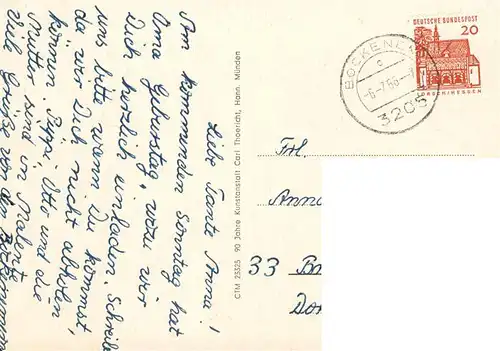 Liebe Tante Anna!
Am kommenden Sonntag hat
Oma Geburtstag, wozu wir
Dich herzlich einladen. Schreibe
uns bitte wenn Du kommst
da wir Dich nicht abholen
können. Püppi, Otto und die
Mutter sind in Malente
Viele Grüße von den
CTM 25325 90 Jahre Kunstanstalt Carl Thoericht, Hann. Münden
DEUTSCHE BUNDESPOST
20
LORSCH/HESSEN
BOCKENE
c
-6-7.66-
3205
Frl.
Anna
33 B
Do